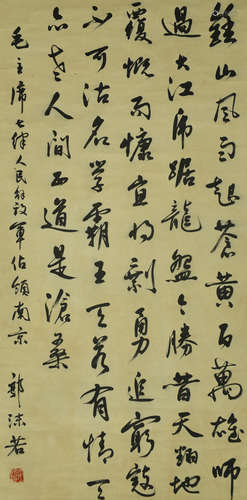 鍾山風雨起蒼黃百萬雄師
過大江虎踞龍盤今勝昔天翻地
覆慨而慷宜將剩勇追窮寇
不可沽名學霸王天若有情天
亦老人間正道是滄桑
毛主席七律人民解放軍佔領南京 郭沫若